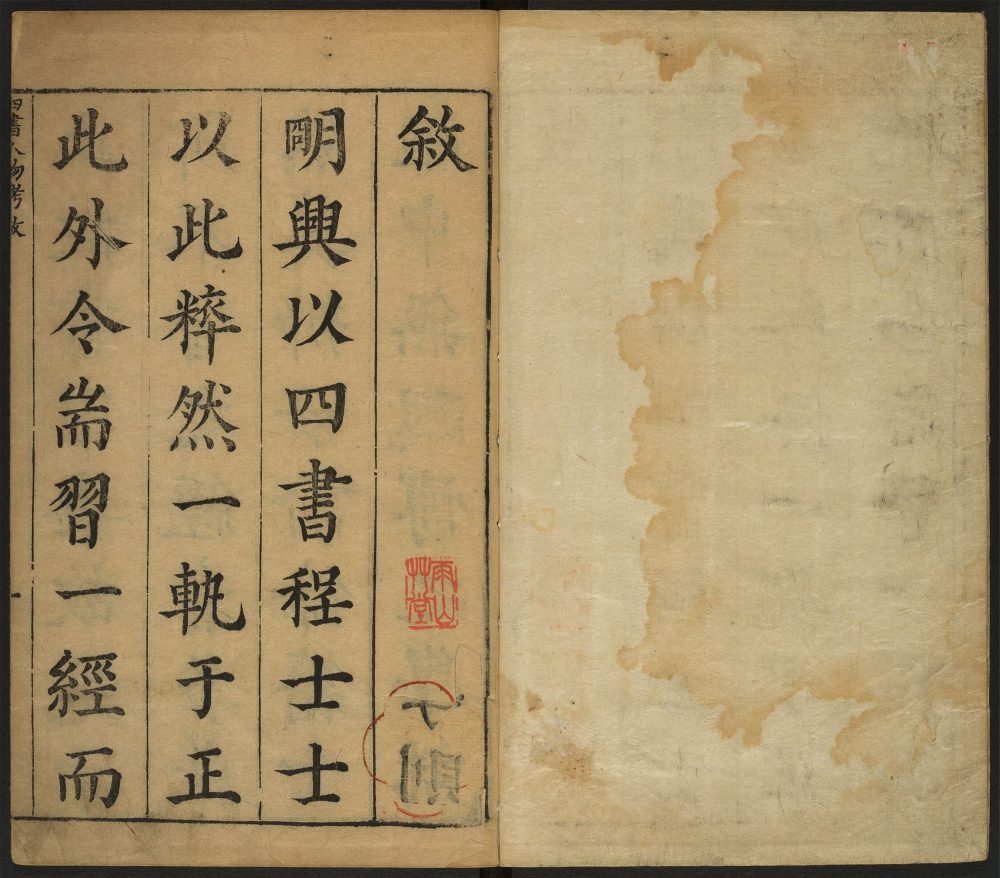 敘
明興以四書程士士
以此粹然一軌于正
此外令耑習一經而
四書人物考敘
一
雨山艸堂